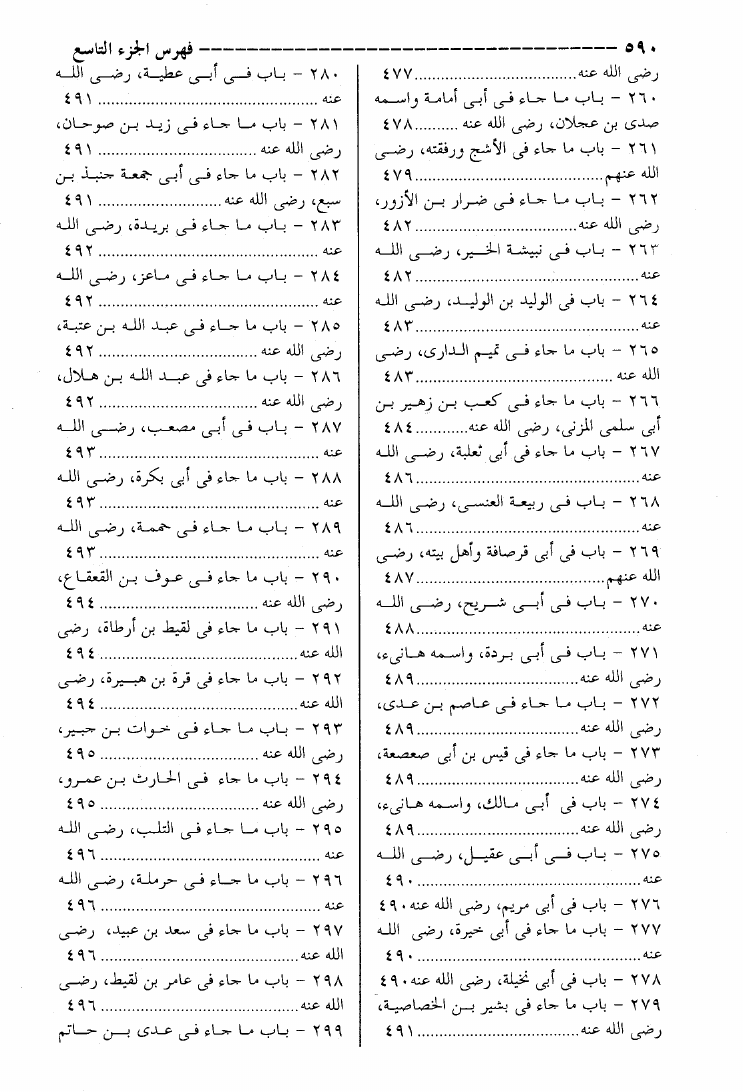 ٥٩٠ ــــــــــــــــــــــــــــــــــــــــــــــــ فهرس الجزء التاسع
رضى الله عنه......................................٤٧٧
٢٦٠ - باب ما جاء فى أبى أمامة واسمه
صدى بن عجلان، رضى الله عنه ..........٤٧٨
٢٦١ - باب ما جاء فى الأشج ورفقته، رضى
الله عنهم........................................٤٧٩
٢٦٢ - باب ما جاء فى ضرار بن الأزور،
رضى الله عنه...................................٤٨٢
٢٦٣ - باب فى نبيشة الخير، رضى الله
عنه..............................................٤٨٢
٢٦٤ - باب فى الوليد بن الوليد، رضى الله
عنه..............................................٤٨٣
٢٦٥ - باب ما جاء فى تميم الدارى، رضى
الله عنه ........................................٤٨٣
٢٦٦ - باب ما جاء فى كعب بن زهير بن
أبى سلمى المزنى، رضى الله عنه............٤٨٤
٢٦٧ - باب ما جاء فى أبى ثعلبة، رضى الله
عنه..............................................٤٨٦
٢٦٨ - باب فى ربيعة العنسى، رضى الله
عنه..............................................٤٨٦
٢٦٩ - باب فى أبى قرصافة وأهل بيته، رضى
الله عنهم........................................٤٨٧
٢٧٠ - باب فى أبى شريح، رضى الله
عنه..............................................٤٨٨
٢٧١ - باب فى أبى بردة، واسمه هانىء،
رضى الله عنه...................................٤٨٩
٢٧٢ - باب ما جاء فى عاصم بن عدى،
رضى الله عنه...................................٤٨٩
٢٧٣ - باب ما جاء فى قيس بن أبى صعصعة،
رضى الله عنه...................................٤٨٩
٢٧٤ - باب فى أبى مالك، واسمه هانىء،
رضى الله عنه...................................٤٨٩
٢٧٥ - باب فى أبى عقيل، رضى الله
عنه..............................................٤٩٠
٢٧٦ - باب فى أبى مريم، رضى الله عنه.٤٩٠
٢٧٧ - باب ما جاء فى أبى خيرة، رضى الله
عنه..............................................٤٩٠
٢٧٨ - باب فى أبى نخيلة، رضى الله عنه.٤٩٠
٢٧٩ - باب ما جاء فى بشير بن الخصاصية،
رضى الله عنه...................................٤٩١
٢٨٠ - باب فى أبى عطية، رضى الله
عنه ..............................................٤٩١
٢٨١ - باب ما جاء فى زيد بن صوحان،
رضى الله عنه ...................................٤٩١
٢٨٢ - باب ما جاء فى أبى جمعة حنبذ بن
سبع، رضى الله عنه ...........................٤٩١
٢٨٣ - باب ما جاء فى بريدة، رضى الله
عنه ..............................................٤٩٢
٢٨٤ - باب ما جاء فى ماعز، رضى الله
عنه ..............................................٤٩٢
٢٨٥ - باب ما جاء فى عبد الله بن عتبة،
رضى الله عنه ...................................٤٩٢
٢٨٦ - باب ما جاء فى عبد الله بن هلال،
رضى الله عنه ...................................٤٩٢
٢٨٧ - باب فى أبى مصعب، رضى الله
عنه ..............................................٤٩٣
٢٨٨ - باب ما جاء فى أبى بكرة، رضى الله
عنه ..............................................٤٩٣
٢٨٩ - باب ما جاء فى حممة، رضى الله
عنه ..............................................٤٩٣
٢٩٠ - باب ما جاء فى عوف بن القعقاع،
رضى الله عنه ...................................٤٩٤
٢٩١ - باب ما جاء فى لقيط بن أرطاة، رضى
الله عنه.........................................٤٩٤
٢٩٢ - باب ما جاء فى قرة بن هبيرة، رضى
الله عنه.........................................٤٩٤
٢٩٣ - باب ما جاء فى خوات بن جبير،
رضى الله عنه ...................................٤٩٥
٢٩٤ - باب ما جاء فى الحارث بن عمرو،
رضى الله عنه ...................................٤٩٥
٢٩٥ - باب ما جاء فى التلب، رضى الله
عنه ..............................................٤٩٦
٢٩٦ - باب ما جاء فى حرملة، رضى الله
عنه..............................................٤٩٦
٢٩٧ - باب ما جاء فى سعد بن عبيد، رضى
الله عنه.........................................٤٩٦
٢٩٨ - باب ما جاء فى عامر بن لقيط، رضى
الله عنه.........................................٤٩٦
٢٩٩ - باب ما جاء فى عدى بن حاتم